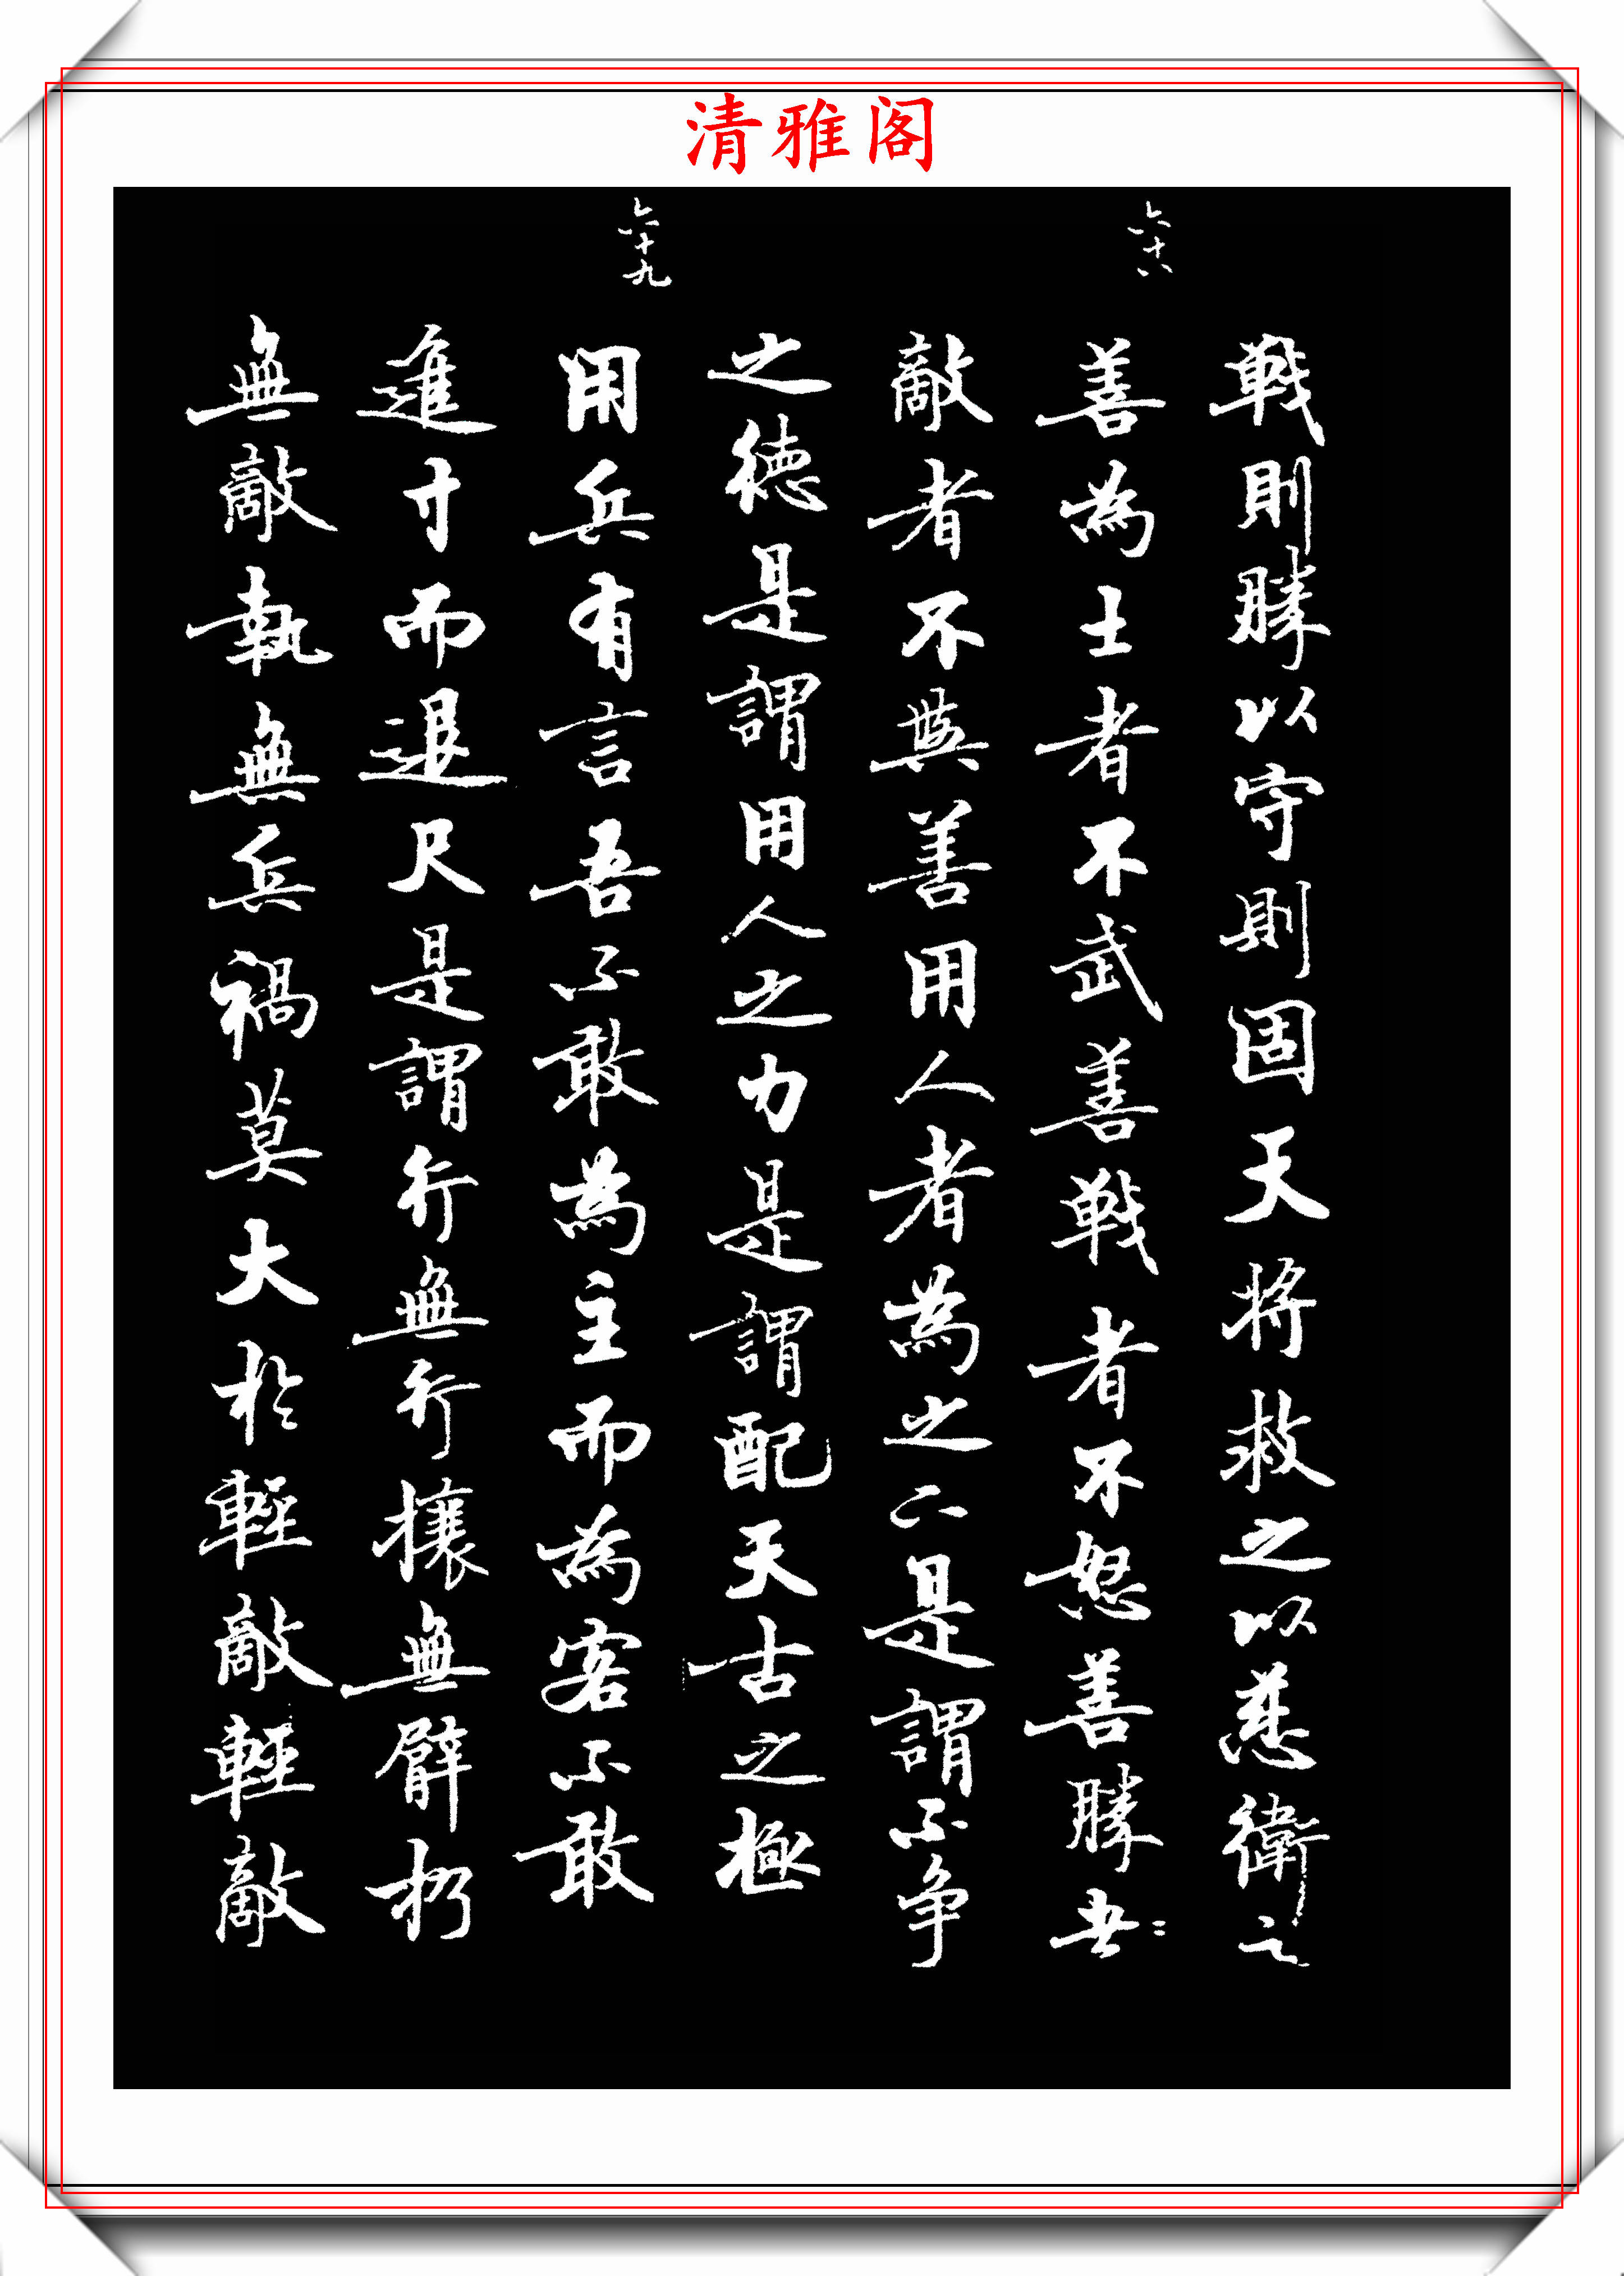 清雅阁
六十八
六十九
戰則勝以守則固天將救之以慈衛之
善為士者不武善戰者不怒善勝
敵者不與善用人者為之下是謂不争
之德是謂用人之力是謂配天古之極
用兵有言吾不敢為主而為客不敢
進寸而退尺是謂行無行攘無臂扔
無敵執無兵禍莫大於輕敵輕敵